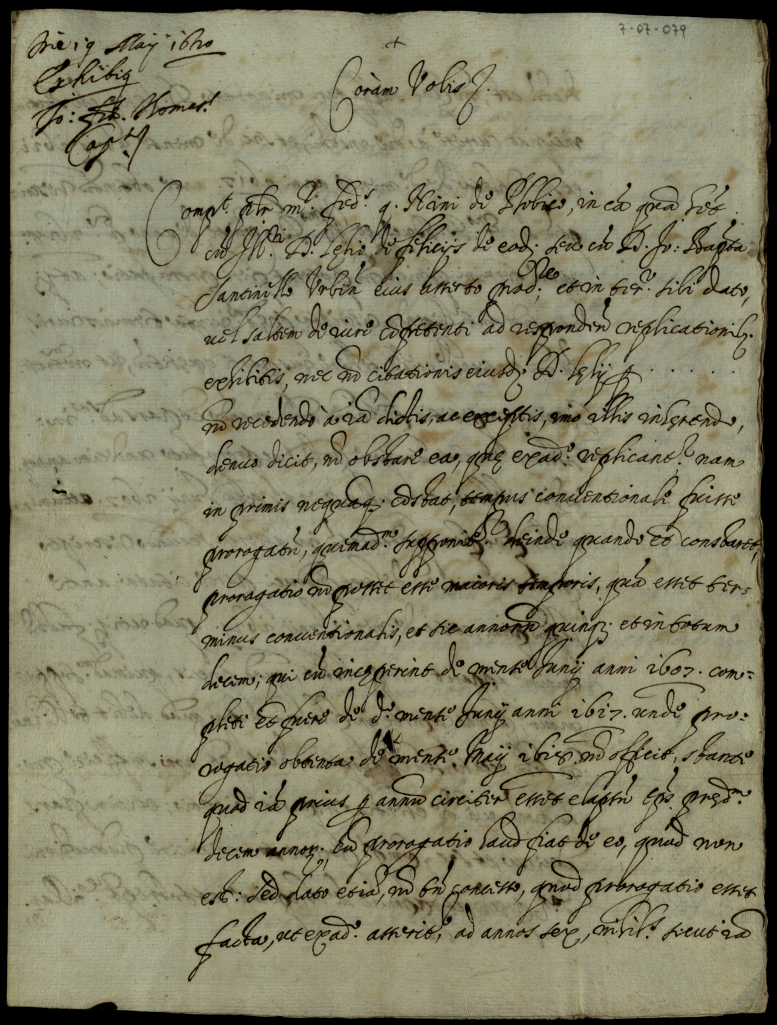 7-07-079
Die 19 Maij 1620
Exhibiq
Jo: Thomas
Capt
+
Coram Vobis
Compt. m: fed: q. Rini de, in ca quā hēt
cū D. Lelio de feliciis de eod: seu cū D. Jo: Bapta
Santinello Urbin eius asserto proc:, et in ter: sibi dato,
vel saltem de iure cōpetenti ad respondend replicationib.
exhibitis, nec nō citationis eiusd: D. Lelij
nō recedendo à iā dictis, ac exceptis, imo illis inhærendo,
denuo dicit, nō obstare ea, quę ex adº replicant: nam
in primis nequaq: cōstat, tempus conventionale fuisse
prorogatū, quemadm supponit: deinde quando et constaret,
prorogatio nō posset esse maioris temporis, quā esset ter-
minus conventionalis, et sic annorū quinq; et in totum
decem; qui cū inceperint de mense Junij anni 1607. com-
pleti et fuere de dº mense Junij anni 1617. unde pro-
rogatio obtenta de mense Maij 1618. nō officit, stante
quod iā prius p annū circiter esset elapsū tps pręd:
decem annor:, cū prorogatio haud fiat de eo, quod non
est: sed dato etiā, nō tn concesso, quod prorogatio esset
facta, ut ex adº asserit, ad annos sex, nihil: sicut iā